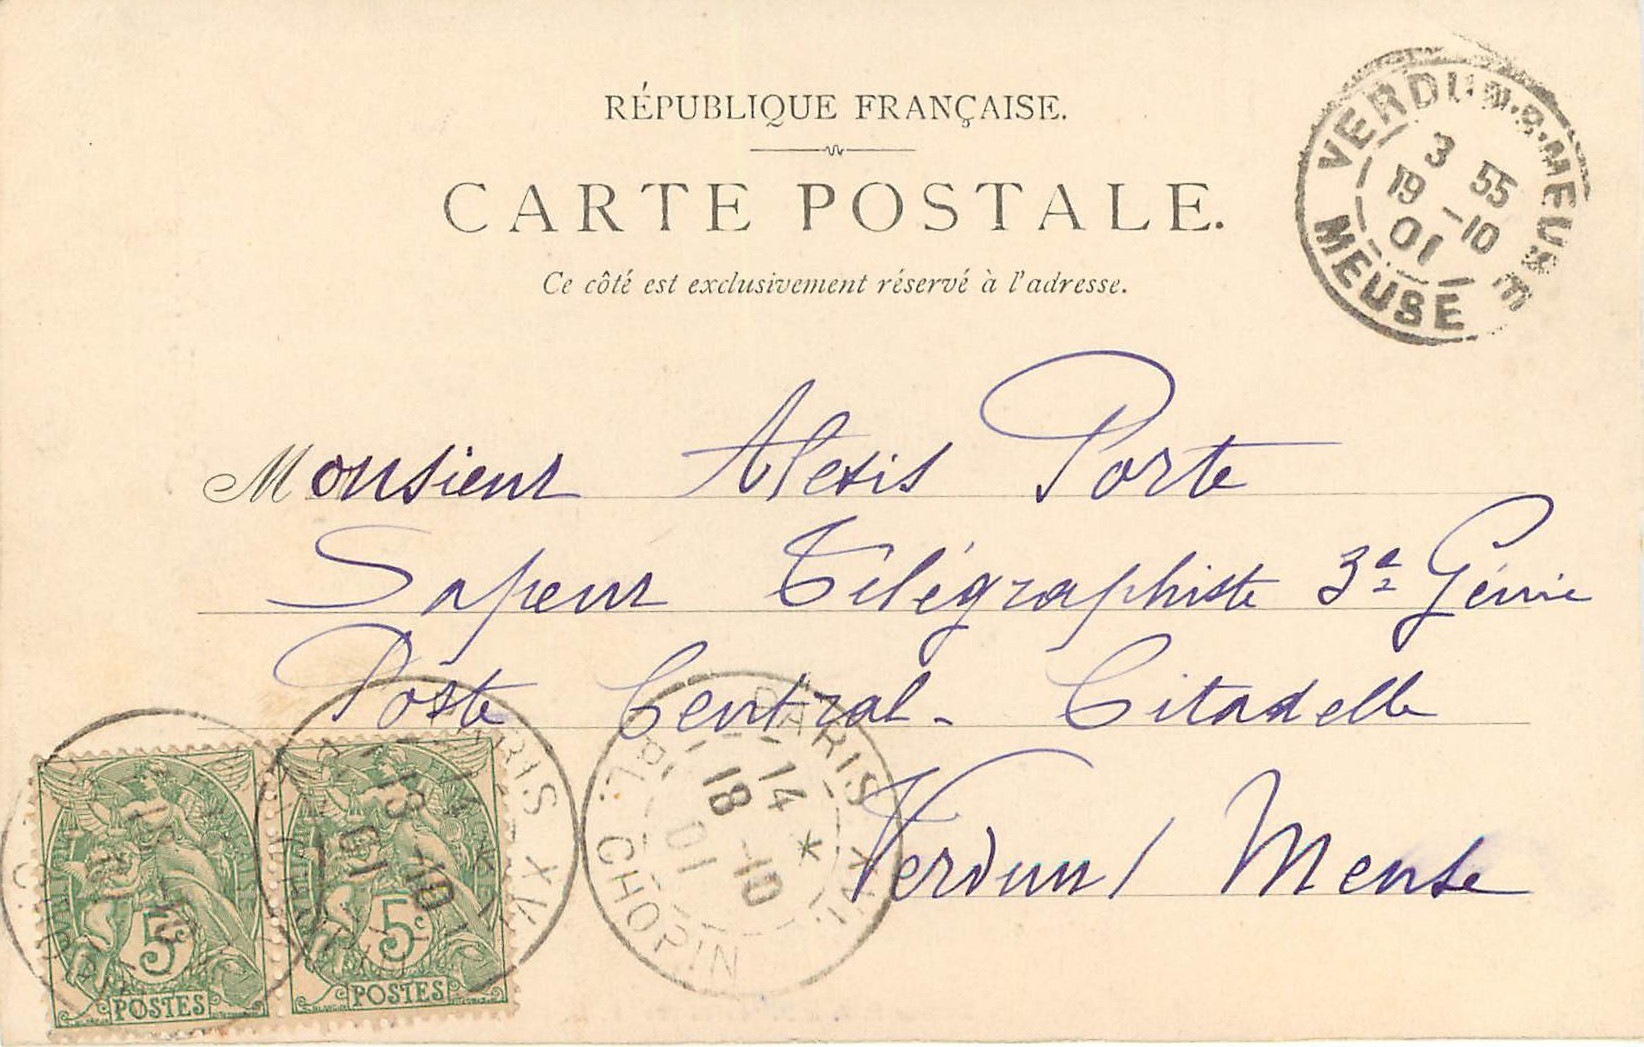 RÉPUBLIQUE FRANÇAISE.
CARTE POSTALE.
Ce côté est exclusivement réservé à l'adresse.
VERDUN-S-MEUSE
3 55
19 -10
01
MEUSE
Monsieur Alexis Porte
Sapeur Télégraphiste 3e Génie
Poste Central - Citadelle
Verdun / Meuse
PARIS XVI
14 *
18 -10
01
PL. CHOPIN
PARIS XVI
14 *
18 -10
01
5c
POSTES
5c
POSTES